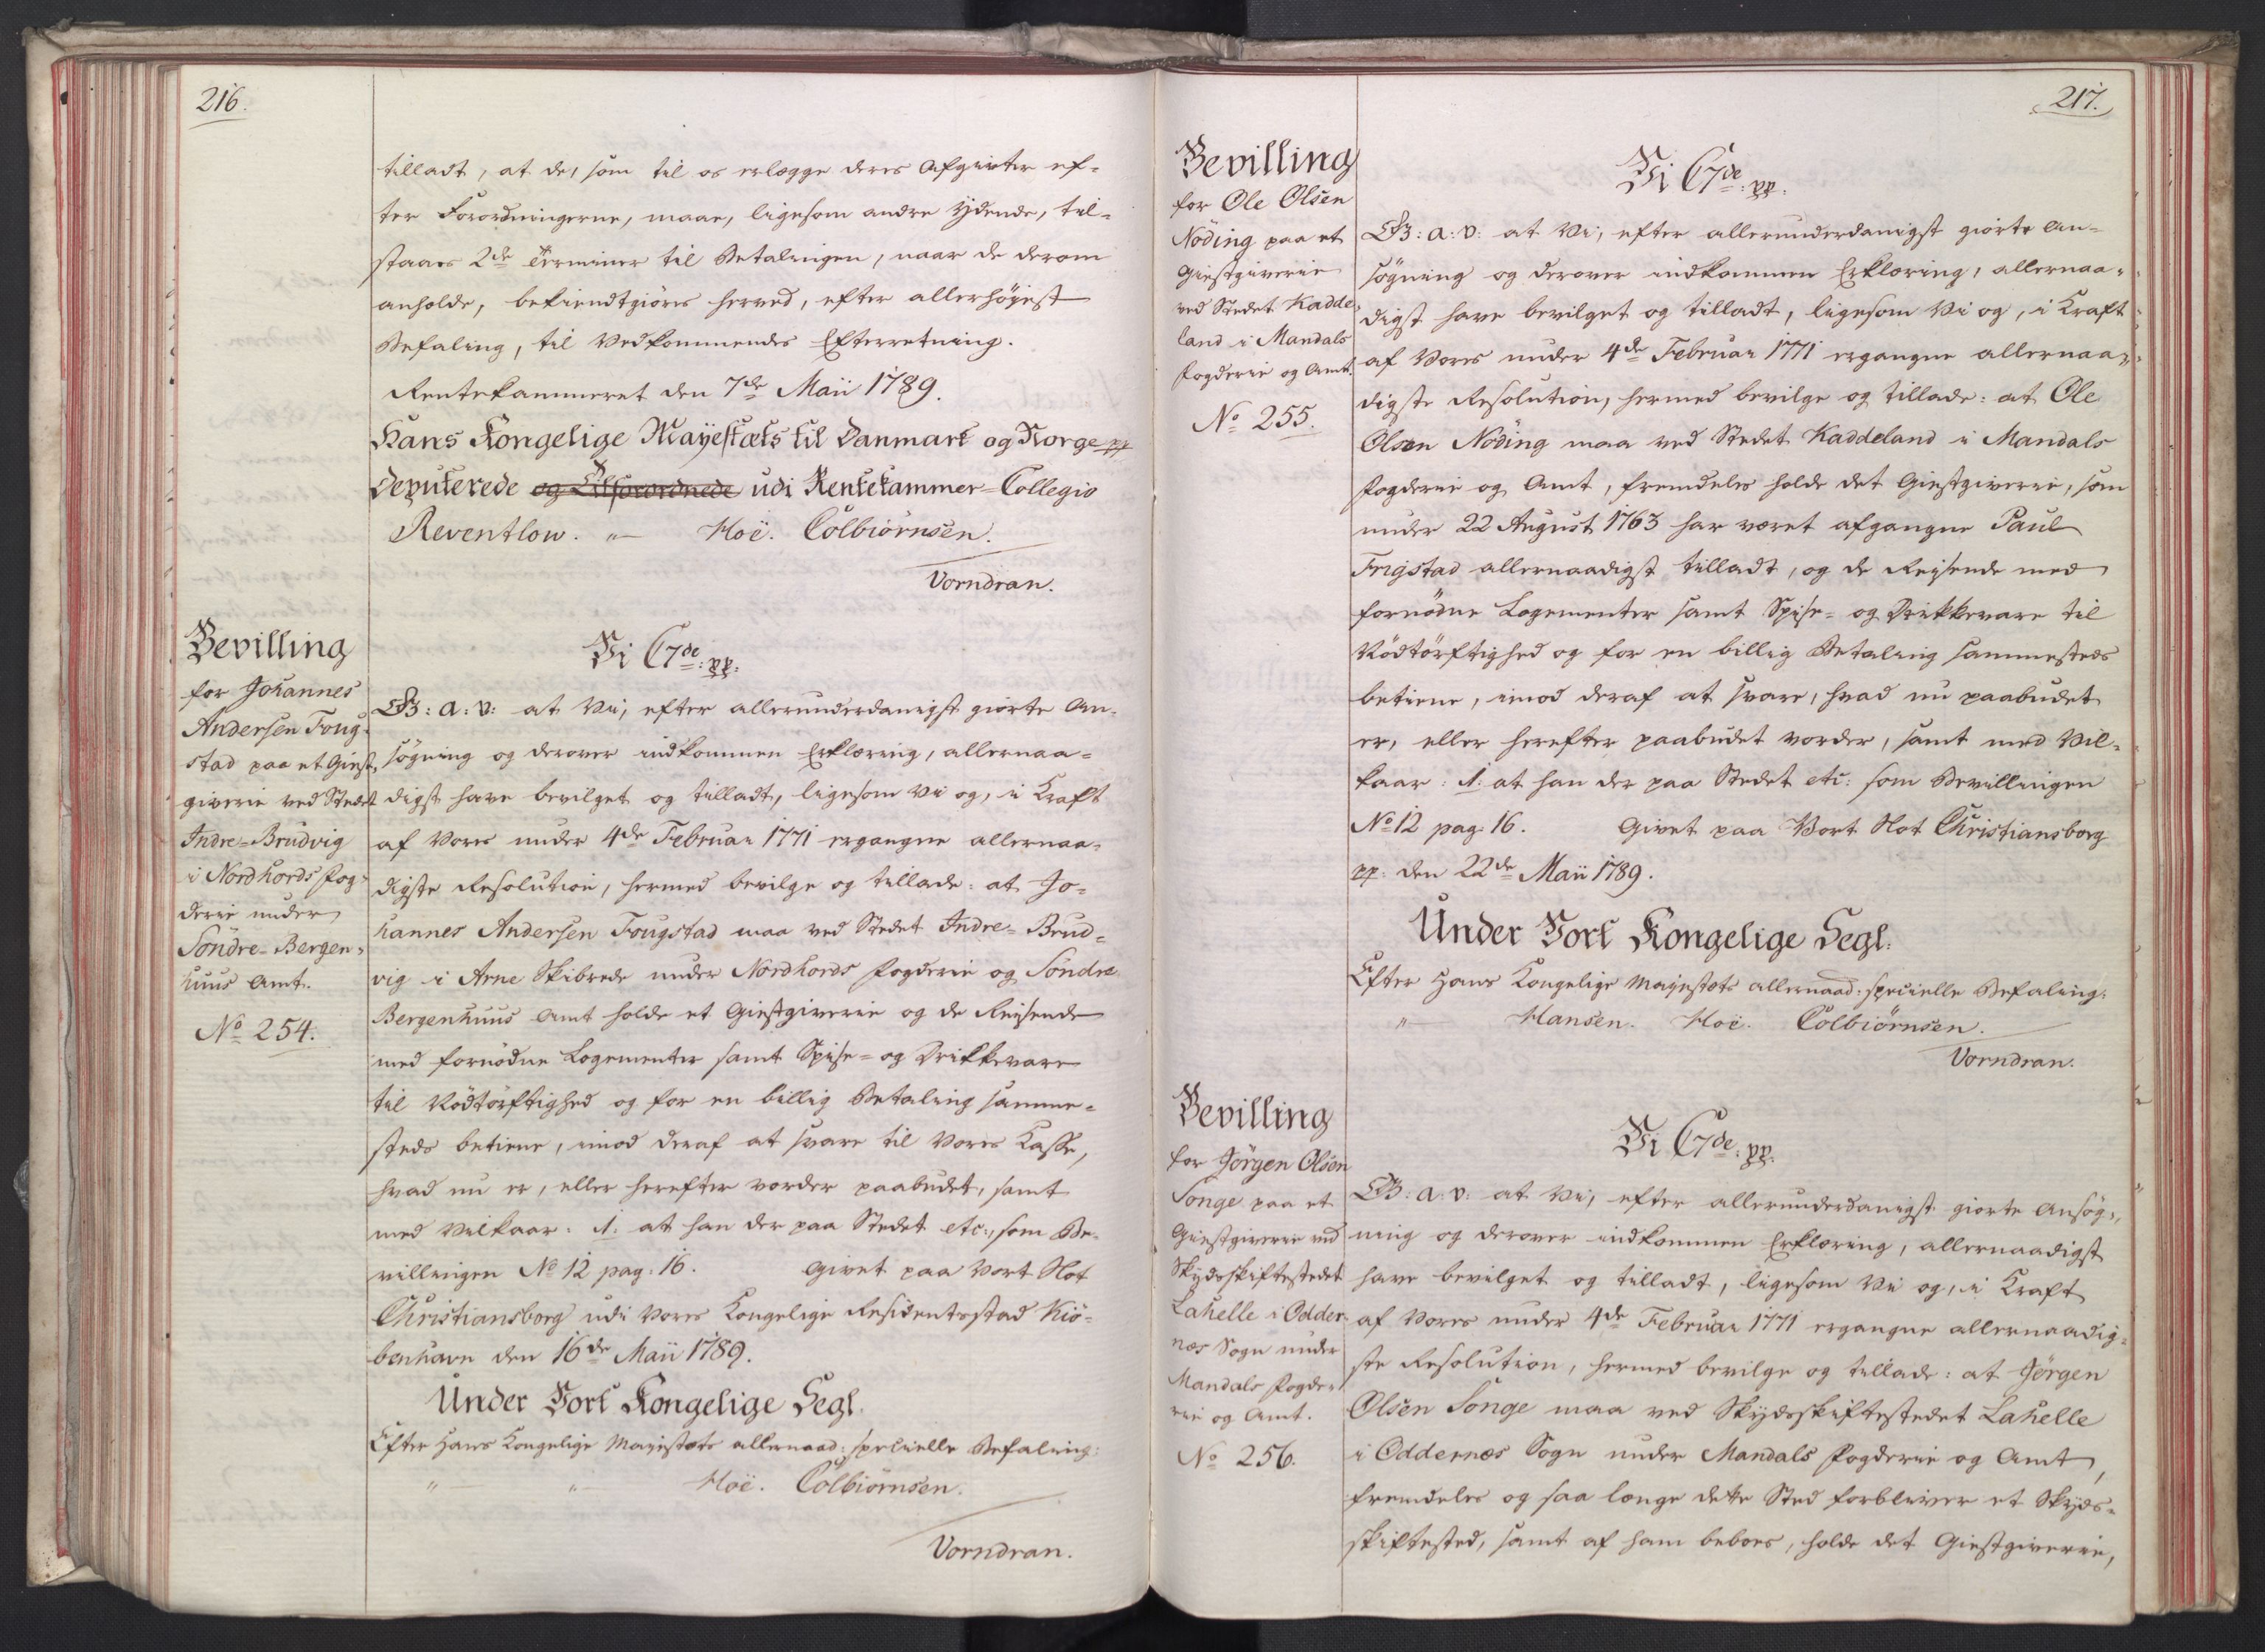 216.
tilladt, at de, som til os erlægge deres Afgivter ef-
ter Forordningerne, maae, ligesom andre Ydende, til-
staaes 2de Terminer til Betalingen, naar de derom
anholde, bekiendtgiöres herved, efter allerhöjest
Befaling, til Vedkommendes Efterretning.
Rentekammeret den 7de Maii 1789.
Hans Kongelige Mayestæts til Danmark og Norge pp
Deputerede og Tilforordnede udi Rentekammer-Collegio
Reventlow. "— Hoë. Colbiörnsen.
Vorndran.
Bevilling
for Johannes
Andersen Foug-
stad paa et Giest-
giverie ved Stedet
Indre-Brudvig
i Nordhords Fog-
derie under
Söndre-Bergen-
huus Amt.
No 254.
Vi C7de: pp.
G: a: v: at Vi, efter allerunderdanigst giorte An-
sögning og derover indkommen Erklæring, allernaa-
digst have bevilget og tilladt, ligesom Vi og, i Kraft
af Vores under 4de Februar 1771 ergangne allernaa-
digste Resolution, hermed bevilge og tillade: at Jo-
hannes Andersen Fougstad maa ved Stedet Indre-Brud-
vig i Arne Skibrede under Nordhords Fogderie og Söndre
Bergenhuus Amt holde et Giestgiverie og de Reisende
med fornödne Logementer samt Spise- og Drikkevare
til Nödtörftighed og for en billig Betaling samme-
steds betiene, imod deraf at svare til Vores Kasse,
hvad nu er, eller herefter vorder paabudet, samt
med Vilkaar: 1. at han der paa Stedet etc., som Be-
villingen No 12 pag. 16. Givet paa Vort Slot
Christiansborg udi Vores Kongelige Residentsstad Kiö-
benhavn den 16de Maii 1789.
Under Vort Kongelige Segl.
Efter Hans Kongelige Mayestæts allernaad: specielle Befaling:
"— "— Hoë. Colbiörnsen.
Vorndran.
217.
Bevilling
for Ole Olsen
Nöding paa et
Giestgiverie
ved Stedet Kadde-
land i Mandals
Fogderie og Amt.
No 255.
Vi C7de: pp.
G: a: v: at Vi, efter allerunderdanigst giorte An-
sögning og derover indkommen Erklæring, allernaa-
digst have bevilget og tilladt, ligesom Vi og, i Kraft
af Vores under 4de Februar 1771 ergangne allernaa-
digste Resolution, hermed bevilge og tillade: at Ole
Olsen Nöding maa ved Stedet Kaddeland i Mandals
Fogderie og Amt, fremdeles holde det Giestgiverie, som
under 22 August 1763 har været afgangne Paul
Frigstad allernaadigst tilladt, og de Reisende med
fornödne Logementer samt Spise- og Drikkevare til
Nödtörftighed og for en billig Betaling sammesteds
betiene, imod deraf at svare, hvad nu paabudet
er, eller herefter paabudet vorder, samt med Vil-
kaar: 1. at han der paa Stedet etc: som Bevillingen
No 12 pag. 16. Givet paa Vort Slot Christiansborg
pp. den 22de Maii 1789.
Under Vort Kongelige Segl.
Efter Hans Kongelige Mayestæts allernaad: specielle Befaling:
"— Hansen. Hoë. Colbiörnsen.
Vorndran.
Bevilling
for Jörgen Olsen
Songe paa et
Giestgiverie ved
Skydsskiftestedet
Lahelle i Odder-
næs Sogn under
Mandals Fogde-
rie og Amt.
No 256.
Vi C7de: pp.
G: a: v: at Vi, efter allerunderdanigst giorte Ansög-
ning og derover indkommen Erklæring, allernaadigst
have bevilget og tilladt, ligesom Vi og, i Kraft
af Vores under 4de Februar 1771 ergangne allernaadig-
ste Resolution, hermed bevilge og tillade: at Jörgen
Olsen Songe maa ved Skydsskiftestedet Lahelle
i Oddernæs Sogn under Mandals Fogderie og Amt,
fremdeles og saa længe dette Sted forbliver et Skyds-
skiftested, samt af ham beboes, holde det Giestgiverie,